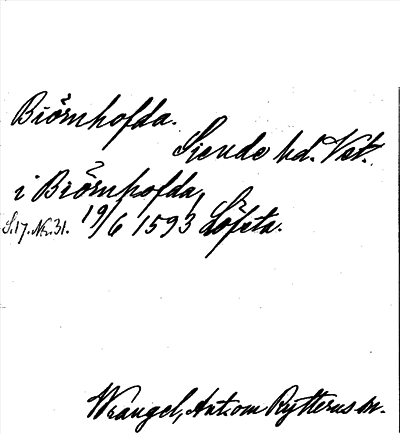 Biörnhofda.
Siende hd. Vstm.
i Biörnhofda,
S.17. Nr. 31. 19/6 1593 Löfsta.
Wrangel, Ant. om Rytterns sn.